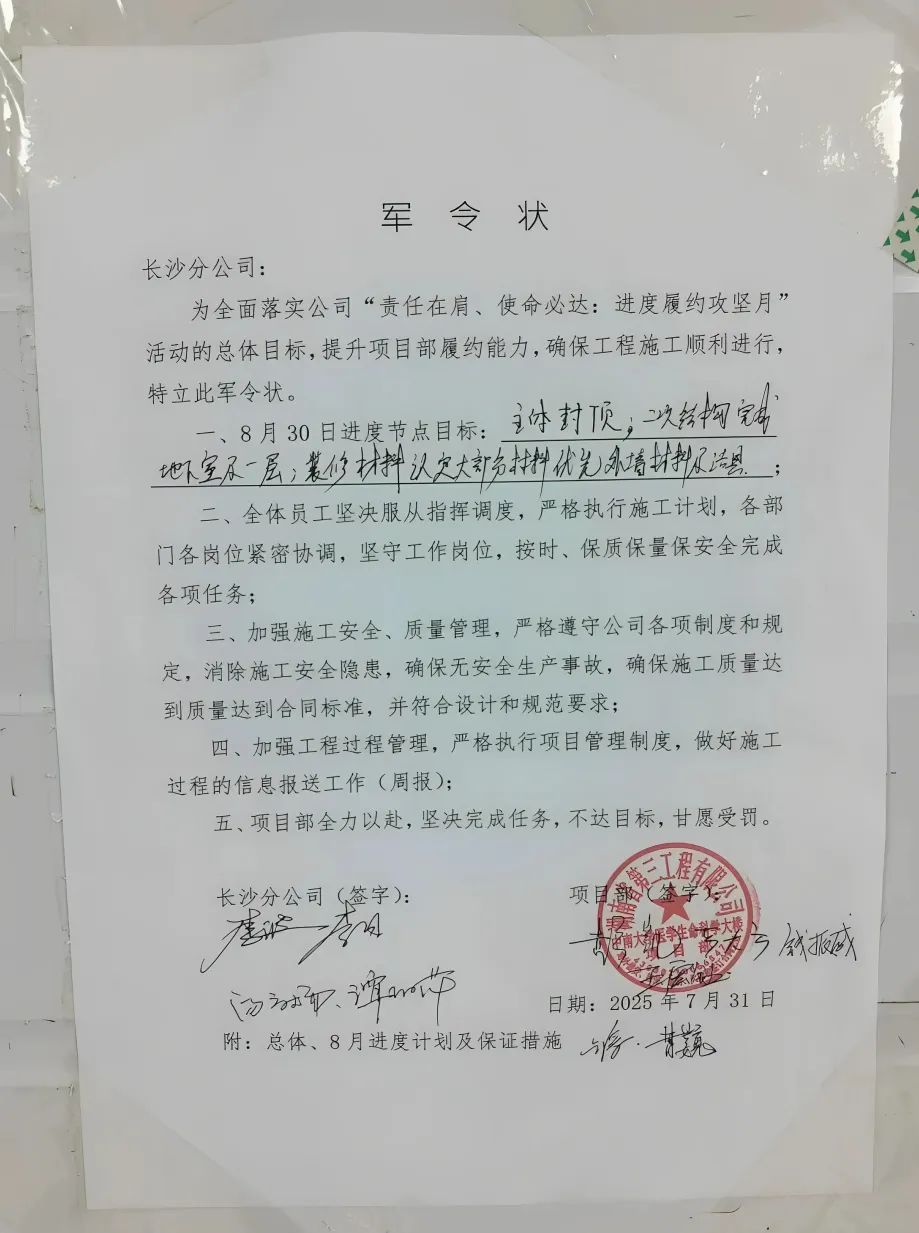 军令状
长沙分公司：
为全面落实公司“责任在肩、使命必达：进度履约攻坚月”
活动的总体目标，提升项目部履约能力，确保工程施工顺利进行，
特立此军令状。
一、8月30日进度节点目标：主体封顶，二次结构完成
地下室及一层；装修材料认定大部分材料优先外墙材料及洁具；
二、全体员工坚决服从指挥调度，严格执行施工计划，各部
门各岗位紧密协调，坚守工作岗位，按时、保质保量保安全完成
各项任务；
三、加强施工安全、质量管理，严格遵守公司各项制度和规
定，消除施工安全隐患，确保无安全生产事故，确保施工质量达
到质量达到合同标准，并符合设计和规范要求；
四、加强工程过程管理，严格执行项目管理制度，做好施工
过程的信息报送工作（周报）；
五、项目部全力以赴，坚决完成任务，不达目标，甘愿受罚。
长沙分公司（签字）：
项目部（签字）：
湖南省第三工程有限公司
中南大学医学生命科学大楼
项目部
钱振威
日期：2025年7月31日
附：总体、8月进度计划及保证措施